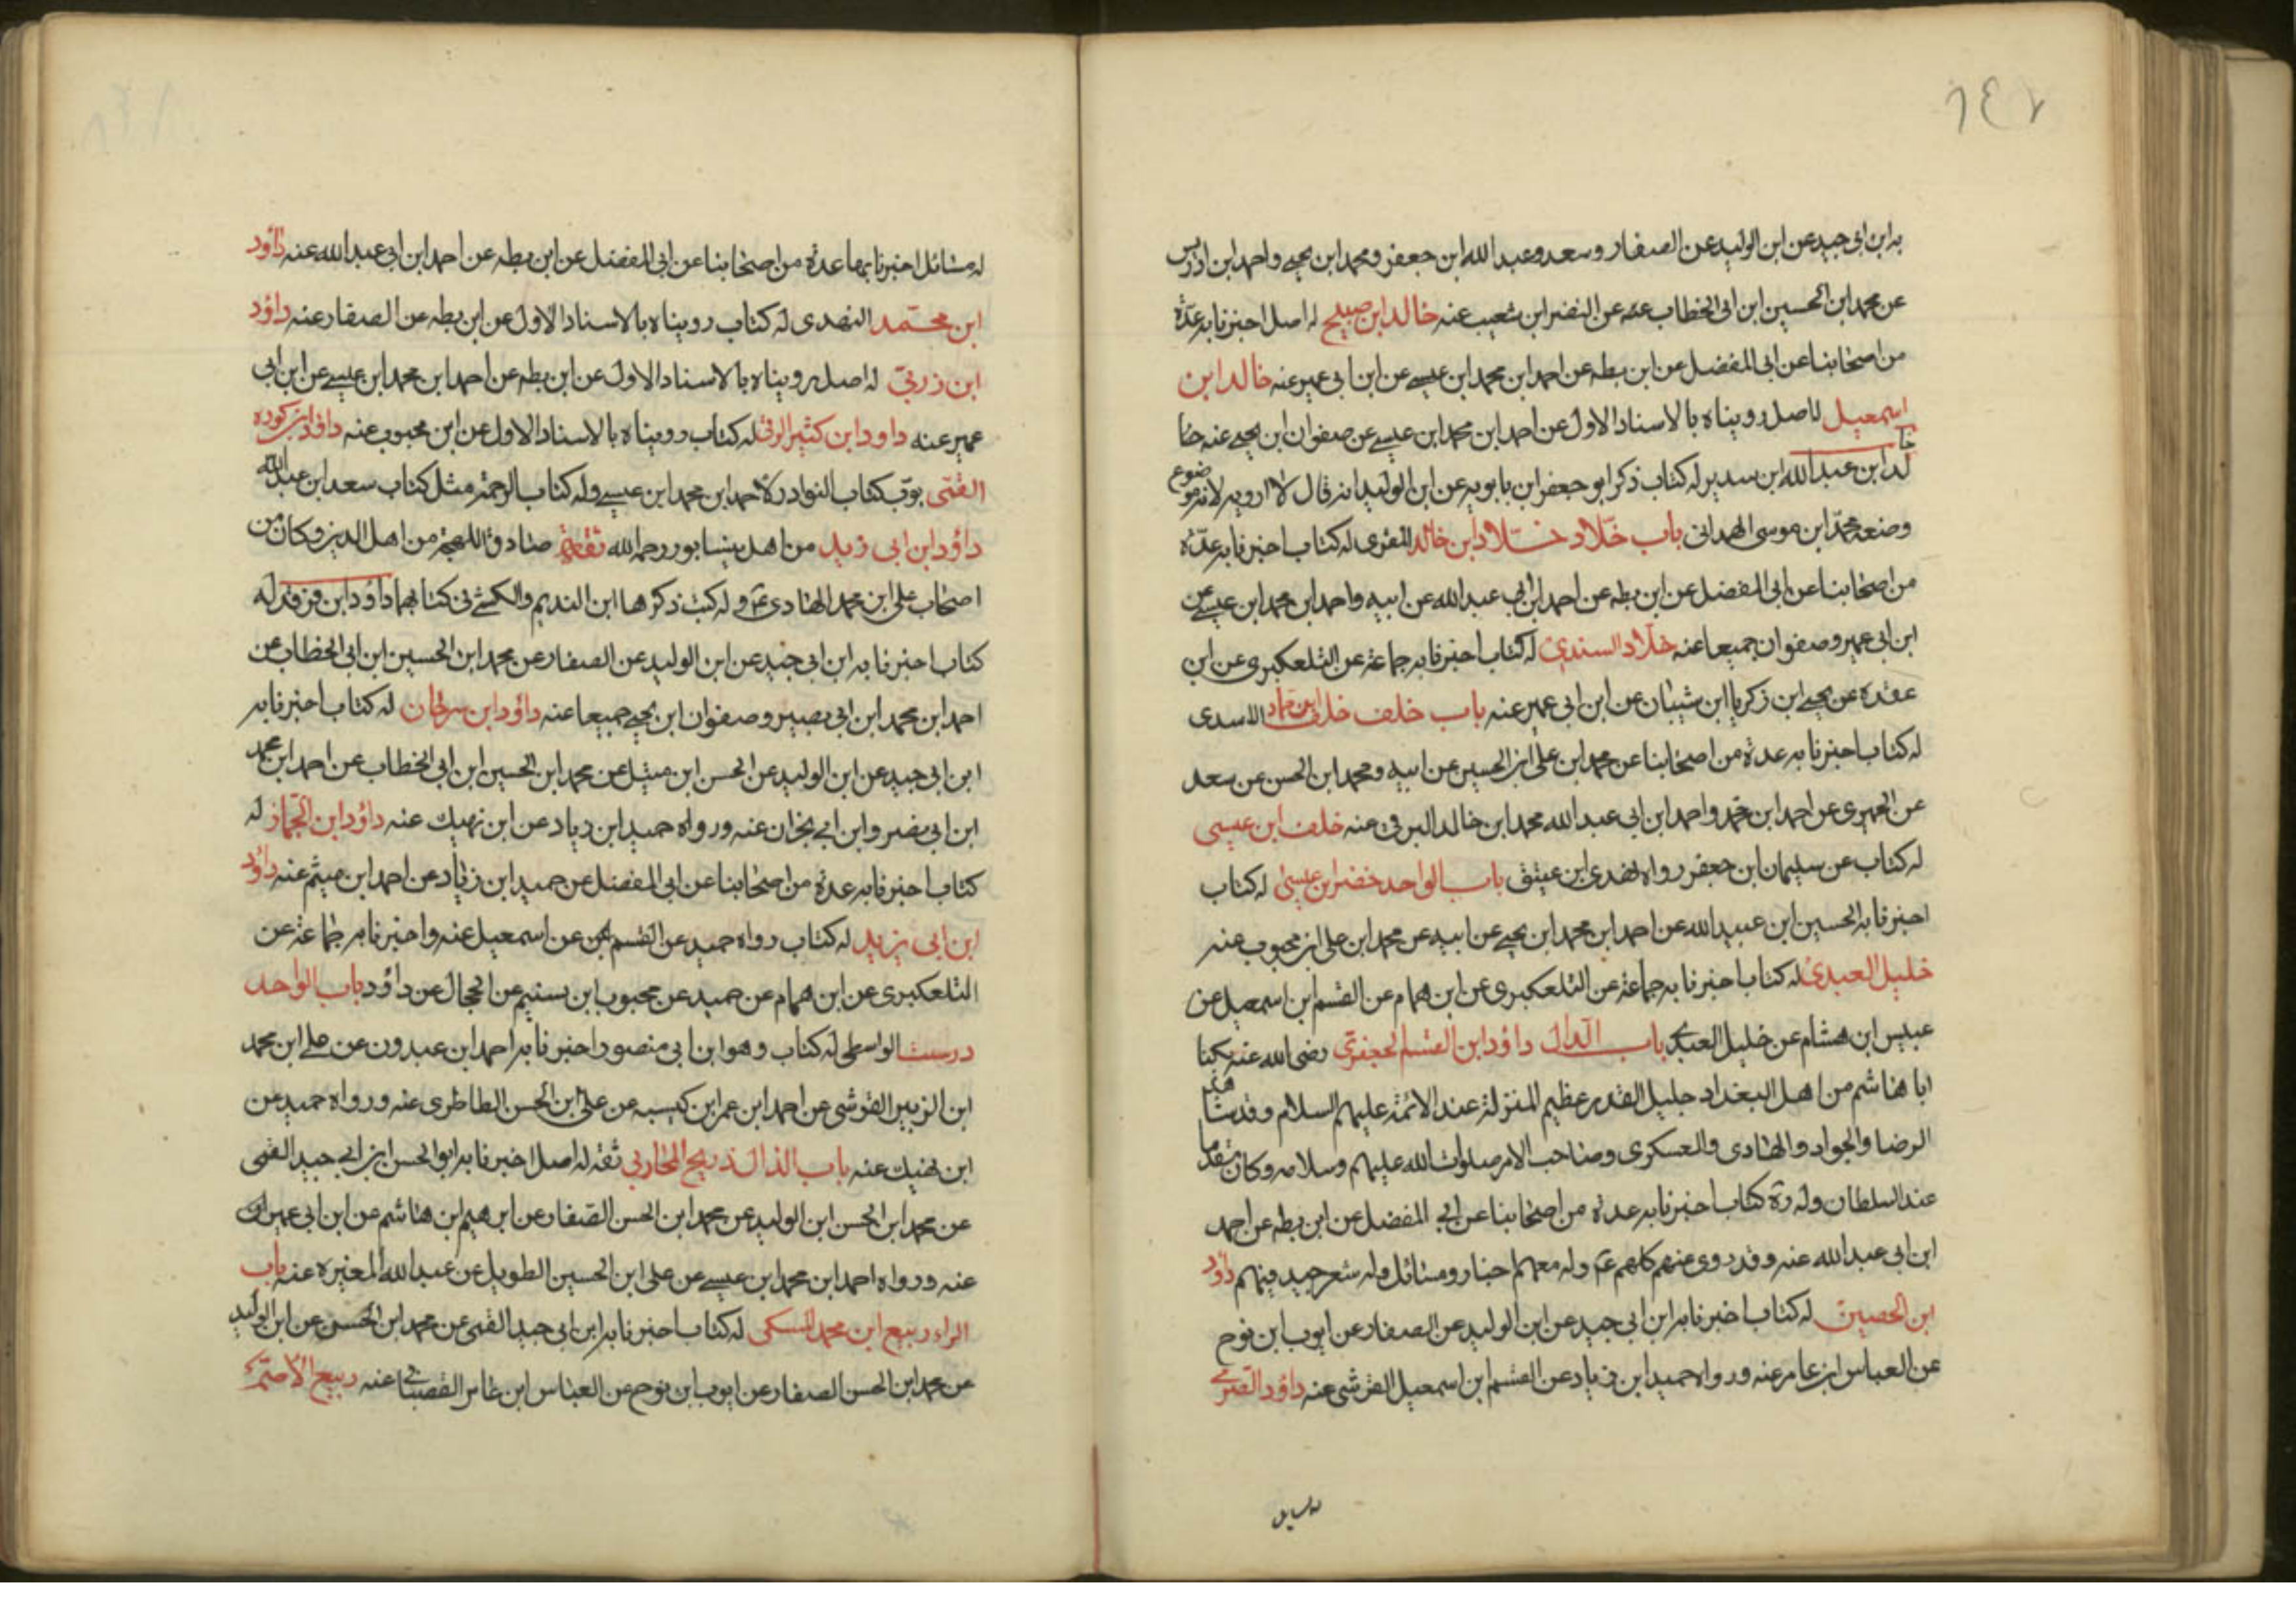 ٢٤٧
به ابن ابى جيد عن ابن الوليد عن الصفار وسعد وعبد الله ابن جعفر ومحمد ابن يحيى واحمد ابن ادريس
عن محمد ابن الحسين ابن ابى الخطاب عن النضر ابن شعيب عنه خالد ابن صبيح له اصل اخبرنا به عدة
من اصحابنا عن ابى المفضل عن ابن بطه عن احمد ابن محمد ابن عيسى عن ابن ابى عمير عنه خالد ابن
اسمعيل له اصل رويناه بالاسناد الاول عن احمد ابن محمد ابن عيسى عن صفوان ابن يحيى عنه خا
لد ابن عبد الله ابن سدير له كتاب ذكر ابو جعفر ابن بابويه عن ابن الوليد انه قال لا ارويه لانه موضوع
وضعه محمد ابن موسى الهمدانى باب خلاد خلاد ابن خالد المقرى له كتاب اخبرنا به عدة
من اصحابنا عن ابى المفضل عن ابن بطه عن احمد ابن ابى عبد الله عن ابيه واحمد ابن محمد ابن عيسى عن
ابن ابى عمير وصفوان جميعا عنه خلاد السندى له كتاب اخبرنا به جماعة عن التلعكبرى عن ابن
عقده عن يحيى ابن زكريا ابن شيبان عن ابن ابى عمير عنه باب خلف خلف ابن حماد الاسدى
له كتاب اخبرنا به عدة من اصحابنا عن محمد ابن على ابن الحسين عن ابيه ومحمد ابن الحسن عن سعد
عن الحميرى عن احمد ابن محمد واحمد ابن ابى عبد الله محمد ابن خالد البرقى عنه خلف ابن عيسى
له كتاب عن سليمان ابن جعفر رواه لهدى ابن عتيق باب الواحد خضر ابن عيسى له كتاب
اخبرنا به الحسين ابن عبيد الله عن احمد ابن محمد ابن يحيى عن ابيه عن محمد ابن على ابن محبوب عنه
خليل العبدى له كتاب اخبرنا به جماعة عن التلعكبرى عن ابن همام عن القسم ابن اسمعيل عن
عبيس ابن هشام عن خليل العبدى باب الدال داؤد ابن القسم الجعفرى رضى الله عنه يكنا
ابا هاشم من اهل البغداد جليل القدر عظيم المنزلة عند الائمة عليهم السلام وقد شاهد
الرضا والجواد والهادى والعسكرى وصاحب الامر صلوات الله عليهم وسلامه وكان مقدما
عند السلطان وله رة كتاب اخبرنا به عدة من اصحابنا عن ابى المفضل عن ابن بطه عن احمد
ابن ابى عبد الله عنه وقد روى عنهم كلهم عم وله معهم اخبار ومسائل وله شعر جيد فيهم داؤد
ابن الحصين له كتاب اخبرنا به ابن ابى جيد عن ابن الوليد عن الصفار عن ايوب ابن نوح
عن العباس ابن عامر عنه ورواه حميد ابن زياد عن القسم ابن اسمعيل القرشى عنه داؤد الصرمى
له مسايل
له مسائل اخبرنا بها عدة من اصحابنا عن ابى المفضل عن ابن بطه عن احمد ابن ابى عبد الله عنه داؤد
ابن محمد النهدى له كتاب رويناه بالاسناد الاول عن ابن بطه عن الصفار عنه داؤد
ابن زربى له اصل رويناه بالاسناد الاول عن ابن بطه عن احمد ابن محمد ابن عيسى عن ابن ابى
عمير عنه داود ابن كثير الرقى له كتاب رويناه بالاسناد الاول عن ابن محبوب عنه داؤد ابن كوره
القمى بوب كتاب النوادر لاحمد ابن محمد ابن عيسى وله كتاب الرحمة مثل كتاب سعد ابن عبد الله
داؤد ابن ابى زيد من اهل نيشابور رحمه الله ثقة صادق اللهجة من اهل الدين وكان من
اصحاب على ابن محمد الهادى ع وله كتب ذكرها ابن النديم والكشى فى كتابهما داؤد ابن فرقد له
كتاب اخبرنا به ابن ابى جيد عن ابن الوليد عن الصفار عن محمد ابن الحسين ابن ابى الخطاب عن
احمد ابن محمد ابن ابى نصير وصفوان ابن يحيى جميعا عنه داؤد ابن سرحان له كتاب اخبرنا به
ابن ابى جيد عن ابن الوليد عن الحسن ابن متيل عن محمد ابن الحسين ابن ابى الخطاب عن احمد ابن محمد
ابن ابى نصير وابن ابى نجران عنه ورواه حميد ابن زياد عن ابن نهيك عنه داؤد ابن الحمار له
كتاب اخبرنا به عدة من اصحابنا عن ابى المفضل عن حميد ابن زياد عن احمد ابن ميثم عنه داؤد
ابن ابى يزيد له كتاب رواه حميد عن القسم عن اسمعيل عنه واخبرنا به جماعة عن
التلعكبرى عن ابن همام عن حميد عن محبوب ابن بسنيم عن الحجال عن داؤد باب الواحد
درست الواسطى له كتاب وهو ابن ابى منصور اخبرنا به احمد ابن عبدون عن على ابن محمد
ابن الزبير القرشى عن احمد ابن عمر ابن كيسبه عن على ابن الحسن الطاطرى عنه ورواه حميد عن
ابن نهيك عنه باب الذال ذريح المحاربى ثقه له اصل اخبرنا به ابو الحسن ابن ابى جيد القمى
عن محمد ابن الحسن ابن الوليد عن محمد ابن الحسن الصفار عن ابرهيم ابن هاشم عن ابن ابى عمير
عنه ورواه احمد ابن محمد ابن عيسى عن على ابن الحسين الطويل عن عبد الله المغيره عنه باب
الراء ربيع ابن محمد المسلى له كتاب اخبرنا به ابن ابى جيد القمى عن محمد ابن الحسن عن ابن الوليد
عن محمد ابن الحسن الصفار عن ايوب ابن نوح عن العباس ابن عامر القصبانى عنه ربيع الاصم